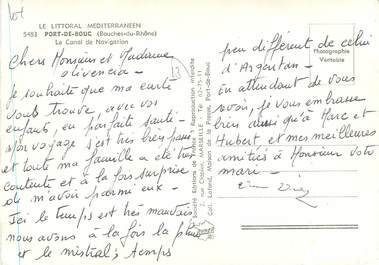 LE LITTORAL MEDITERRANEEN
5483 PORT-DE-BOUC (Bouches-du-Rhône)
Le Canal de Navigation
Chers Monsieur et Madame
Olivencia -
Je souhaite que ma carte
vous trouve, avec vos
enfants, en parfaite santé -
mon voyage s'est très bien passé
et toute ma famille a été très
contente et à la fois surprise
de m'avoir parmi eux -
Ici le temps est très mauvais
nous avons à la fois la pluie
et le mistral ; temps
peu différent de celui
d'Argentan -
En attendant de vous
revoir, je vous embrasse
bien ainsi qu'à Marc et
Hubert et mes meilleures
amitiés à Monsieur votre
mari -
Société Editions de France Reproduction interdite
2, rue MARSEILLE
Coll. Maison de la Presse, Port-de-Bouc
Photographie
Véritable